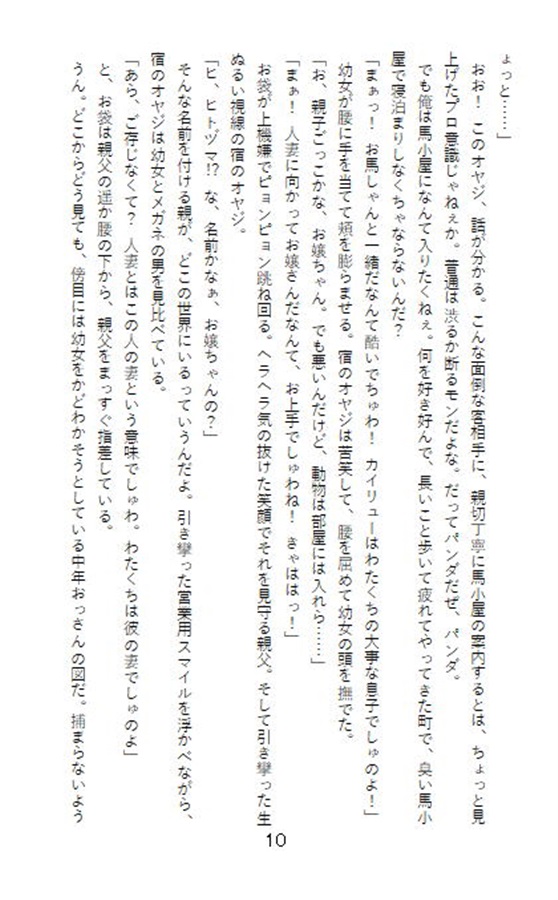 ょっと……」
　おお！　このオヤジ、話が分かる。こんな面倒な客相手に、親切丁寧に馬小屋の案内するとは、ちょっと見
上げたプロ意識じゃねぇか。普通は渋るか断るモンだよな。だってパンダだぜ、パンダ。
　でも俺は馬小屋になんて入りたくねぇ。何を好き好んで、長いこと歩いて疲れてやってきた町で、臭い馬小
屋で寝泊まりしなくちゃならないんだ？
「まぁっ！　お馬しゃんと一緒だなんて酷いでちゅわ！　カイリューはわたくちの大事な息子でしゅのよ！」
　幼女が腰に手を当てて頬を膨らませる。宿のオヤジは苦笑して、腰を屈めて幼女の頭を撫でた。
「お、親子ごっこかな、お嬢ちゃん。でも悪いんだけど、動物は部屋には入れら……」
「まぁ！　人妻に向かってお嬢さんだなんて、お上手でしゅわね！　きゃははっ！」
　お袋が上機嫌でピョンピョン跳ね回る。ヘラヘラ気の抜けた笑顔でそれを見守る親父。そして引き攣った生
ぬるい視線の宿のオヤジ。
「ヒ、ヒトヅマ!?　な、名前かなぁ、お嬢ちゃんの？」
　そんな名前を付ける親が、どこの世界にいるっていうんだよ。引き攣った営業用スマイルを浮かべながら、
宿のオヤジは幼女とメガネの男を見比べている。
「あら、ご存じなくて？　人妻とはこの人の妻という意味でしゅわ。わたくちは彼の妻でしゅのよ」
　と、お袋は親父の遥か腰の下から、親父をまっすぐ指差している。
　うん。どこからどう見ても、傍目には幼女をかどわかそうとしている中年おっさんの図だ。捕まらないよう
10